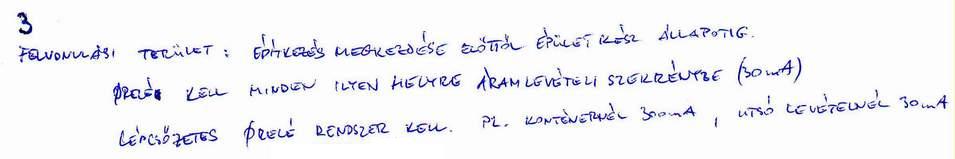 3
FELVONULÁSI TERÜLET : ÉPÍTKEZÉS MEGKEZDÉSE ELŐTTŐL ÉPÜLET KÉSZ ÁLLAPOTIG.
ØRELÉK KELL MINDEN ILYEN HELYRE ÁRAMLEVÉTELI SZEKRÉNYBE (30mA)
LÉPCSŐZETES ØRELÉ RENDSZER KELL. PL. KONTÉNERNÉL 300mA , UTSÓ LEVÉTELNÉL 30mA